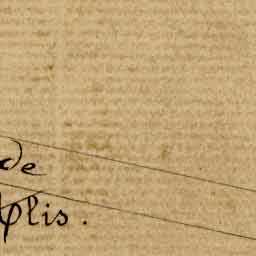 de
plis.